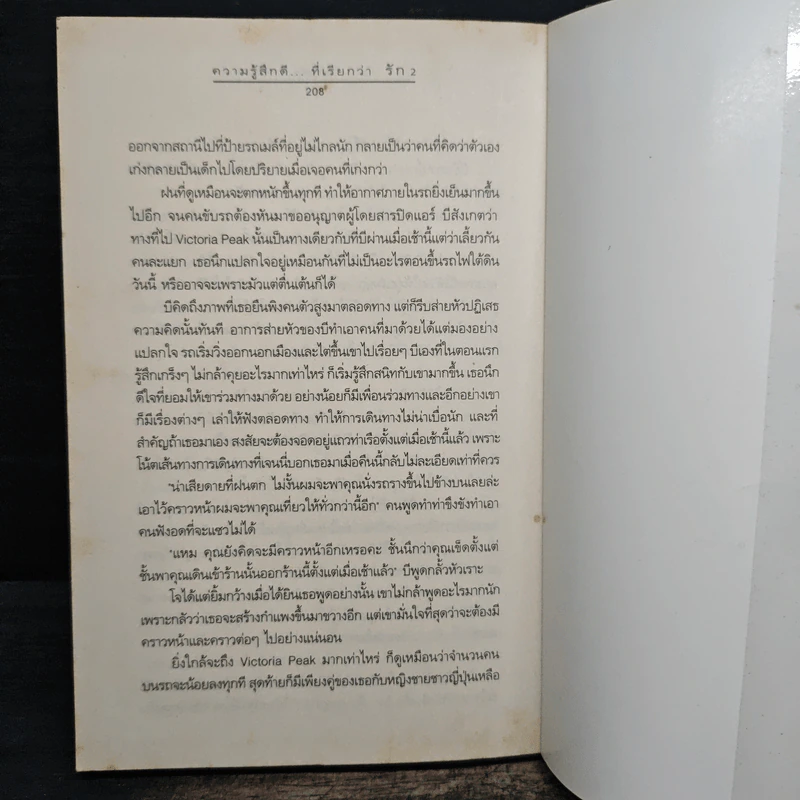 ความรู้สึกดี... ที่เรียกว่า รัก 2
208
ออกจากสถานีไปที่ป้ายรถเมล์ที่อยู่ไม่ไกลนัก กลายเป็นว่าคนที่คิดว่าตัวเอง
เก่งกลายเป็นเด็กไปโดยปริยายเมื่อเจอคนที่เก่งกว่า
ฝนที่ดูเหมือนจะตกหนักขึ้นทุกที ทำให้อากาศภายในรถยิ่งเย็นมากขึ้น
ไปอีก จนคนขับรถต้องหันมาขออนุญาตผู้โดยสารปิดแอร์ บีสังเกตว่า
ทางที่ไป Victoria Peak นั้นเป็นทางเดียวกับที่บีผ่านเมื่อเช้านี้แต่ว่าเลี้ยวกัน
คนละแยก เธอนึกแปลกใจอยู่เหมือนกันที่ไม่เป็นอะไรตอนขึ้นรถไฟใต้ดิน
วันนี้ หรืออาจจะเพราะมัวแต่ตื่นเต้นก็ได้
บีคิดถึงภาพที่เธอยืนพิงคนตัวสูงมาตลอดทาง แต่ก็รีบส่ายหัวปฏิเสธ
ความคิดนั้นทันที อาการส่ายหัวของบีทำเอาคนที่มาด้วยได้แต่มองอย่าง
แปลกใจ รถเริ่มวิ่งออกนอกเมืองและไต่ขึ้นเขาไปเรื่อยๆ บีเองที่ในตอนแรก
รู้สึกเกร็งๆ ไม่กล้าคุยอะไรมากเท่าไหร่ ก็เริ่มรู้สึกสนิทกับเขามากขึ้น เธอนึก
ดีใจที่ยอมให้เขาร่วมทางมาด้วย อย่างน้อยก็มีเพื่อนร่วมทางและอีกอย่างเขา
ก็มีเรื่องต่างๆ เล่าให้ฟังตลอดทาง ทำให้การเดินทางไม่น่าเบื่อนัก และที่
สำคัญถ้าเธอมาเอง สงสัยจะต้องจอดอยู่แถวท่าเรือตั้งแต่เมื่อเช้านี้แล้ว เพราะ
โน้ตเส้นทางการเดินทางที่เจนนี่บอกเธอมาเมื่อคืนนี้กลับไม่ละเอียดเท่าที่ควร
"น่าเสียดายที่ฝนตก ไม่งั้นผมจะพาคุณนั่งรถรางขึ้นไปข้างบนเลยล่ะ
เอาไว้คราวหน้าผมจะพาคุณเที่ยวให้ทั่วกว่านี้อีก" คนพูดทำท่าขึงขังทำเอา
คนฟังอดที่จะแซวไม่ได้
"แหม คุณยังคิดจะมีคราวหน้าอีกเหรอคะ ชั้นนึกว่าคุณเข็ดตั้งแต่
ชั้นพาคุณเดินเข้าร้านนั้นออกร้านนี้ตั้งแต่เมื่อเช้าแล้ว" บีพูดกลั้วหัวเราะ
โจได้แต่ยิ้มกว้างเมื่อได้ยินเธอพูดอย่างนั้น เขาไม่กล้าพูดอะไรมากนัก
เพราะกลัวว่าเธอจะสร้างกำแพงขึ้นมาขวางอีก แต่เขามั่นใจที่สุดว่าจะต้องมี
คราวหน้าและคราวต่อๆ ไปอย่างแน่นอน
ยิ่งใกล้จะถึง Victoria Peak มากเท่าไหร่ ก็ดูเหมือนว่าจำนวนคน
บนรถจะน้อยลงทุกที สุดท้ายก็มีเพียงคู่ของเธอกับหญิงชายชาวญี่ปุ่นเหลือ